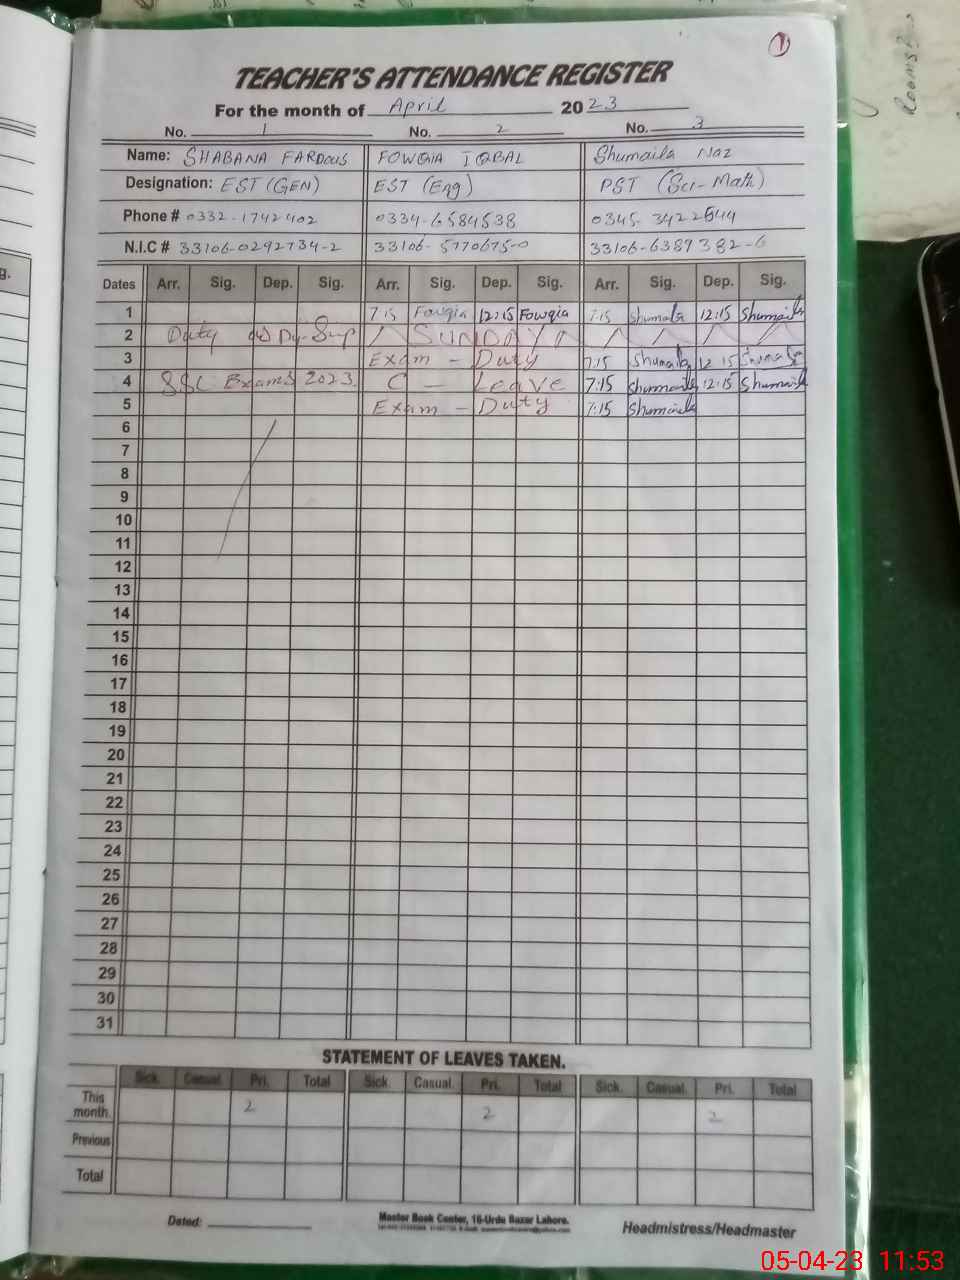 1
Rooms
TEACHER'S ATTENDANCE REGISTER
For the month of April 2023
No. 1 No. 2 No. 3
Name: SHABANA FARDOUS FOWQIA IQBAL Shumaila Naz
Designation: EST (GEN) EST (Eng) PST (Sci-Math)
Phone # 0332-1742402 0334-6584538 0345-3422544
N.I.C # 33106-0292734-2 33106-5770675-0 33106-6389382-6
g.
Dates Arr. Sig. Dep. Sig. Arr. Sig. Dep. Sig. Arr. Sig. Dep. Sig.
1 7:15 Fowqia 12:15 Fowqia 7:15 Shumaila 12:15 Shumaila
2 Duty as Dy-Sup SUNDAY
3 Exam - Duty 7:15 Shumaila 12:15 Shumaila
4 SSC Exams 2023 C - Leave 7:15 Shumaila 12:15 Shumaila
5 Exam - Duty 7:15 Shumaila
6
7
8
9
10
11
12
13
14
15
16
17
18
19
20
21
22
23
24
25
26
27
28
29
30
31
STATEMENT OF LEAVES TAKEN.
Sick. Casual. Pri. Total Sick. Casual. Pri. Total Sick. Casual. Pri. Total
This month. 2 2 2
Previous
Total
Dated: Master Book Center, 16-Urdu Bazar Lahore. Headmistress/Headmaster
05-04-23 11:53